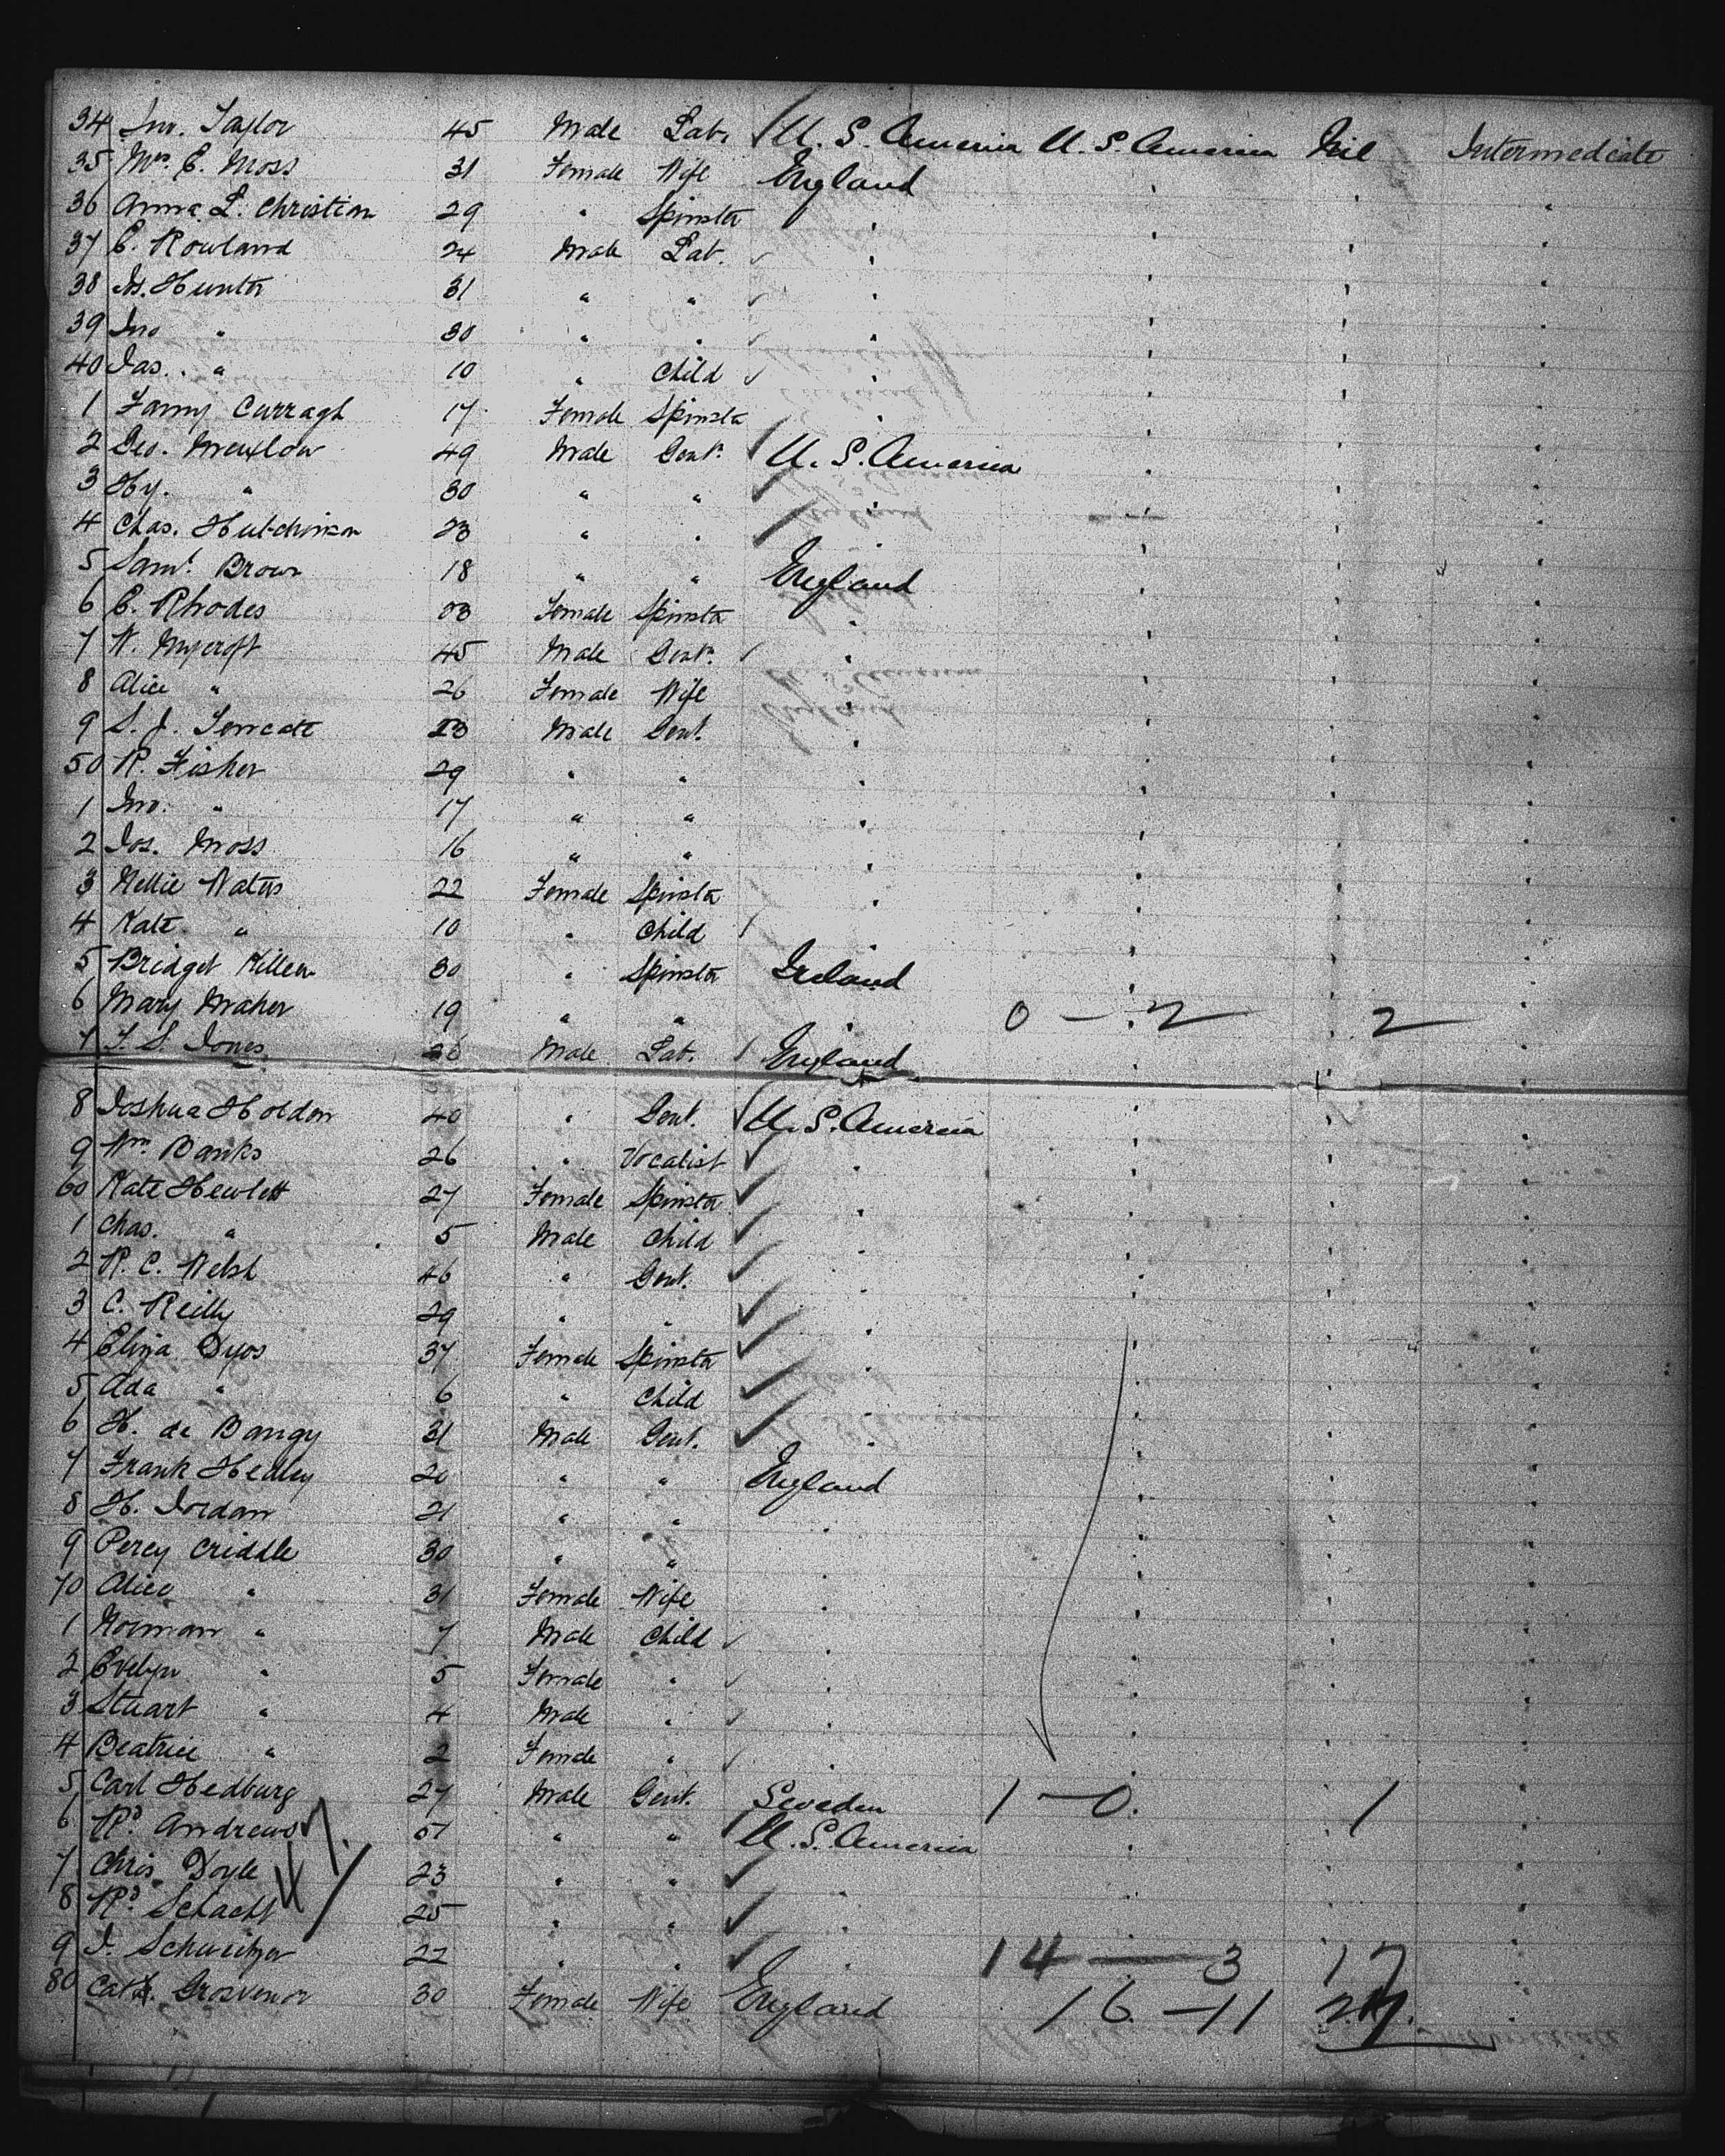 34 Jno. Taylor 45 Male Lab. U. S. America U. S. America Nil Intermediate
35 Mrs. E. Moss 31 Female Wife England
36 Anna L. Christian 29 " Spinster "
37 E. Rowland 24 Male Lab. "
38 Js. Hunter 31 " " "
39 Jno " 30 " " "
40 Jas. " 10 " Child "
1 Fanny Curragh 17 Female Spinster "
2 Geo. 49 Male Gent. U. S. America
3 Hy. " 30 " " "
4 Chas. Hutchinson 23 " " "
5 Saml. Brown 18 " " England
6 E. Rhodes Female Spinster "
7 W. Mycroft 45 Male Gent. "
8 Alice " 26 Female Wife "
9 S. J. Male Gent. "
50 R. Fisher 29 " " "
1 Jno. " 17 " " "
2 Jos. Moss 16 " " "
3 Nellie Waters 22 Female Spinster "
4 Kate " 10 " Child "
5 Bridget Killen 30 " Spinster Ireland
6 Mary Maher 19 " " " 0 — 2 2
7 T. S. Jones 26 Male Lab. England
8 Joshua Holden 40 " Gent. U. S. America
9 Wm. Banks 26 " Vocalist "
60 Kate Hewlett 27 Female Spinster "
1 Chas. " 5 Male Child "
2 R. C. Welsh 46 " Gent. "
3 C. Reilly 29 " " "
4 Eliza Dyos 37 Female Spinster "
5 Ada " 6 " Child "
6 H. de Bangy 31 Male Gent. "
7 Frank Hedley 20 " " England
8 H. Jordan 21 " " "
9 Percy Criddle 30 " " "
70 Alice " 31 Female Wife "
1 Norman " 7 Male Child "
2 Evelyn " 5 Female " "
3 Stuart " 4 Male " "
4 Beatrice " 2 Female " "
5 Carl Hedburg 27 Male Gent. Sweden 1 — 0 1
6 Rd. Andrews 51 " " U. S. America
7 Chris. Doyle 23 " " "
8 Rd. Schacht 25 " " "
9 J. Schweitzer 22 " " " 14 — 3 17
80 Cath. Grosvenor 30 Female Wife England 16 — 11 27